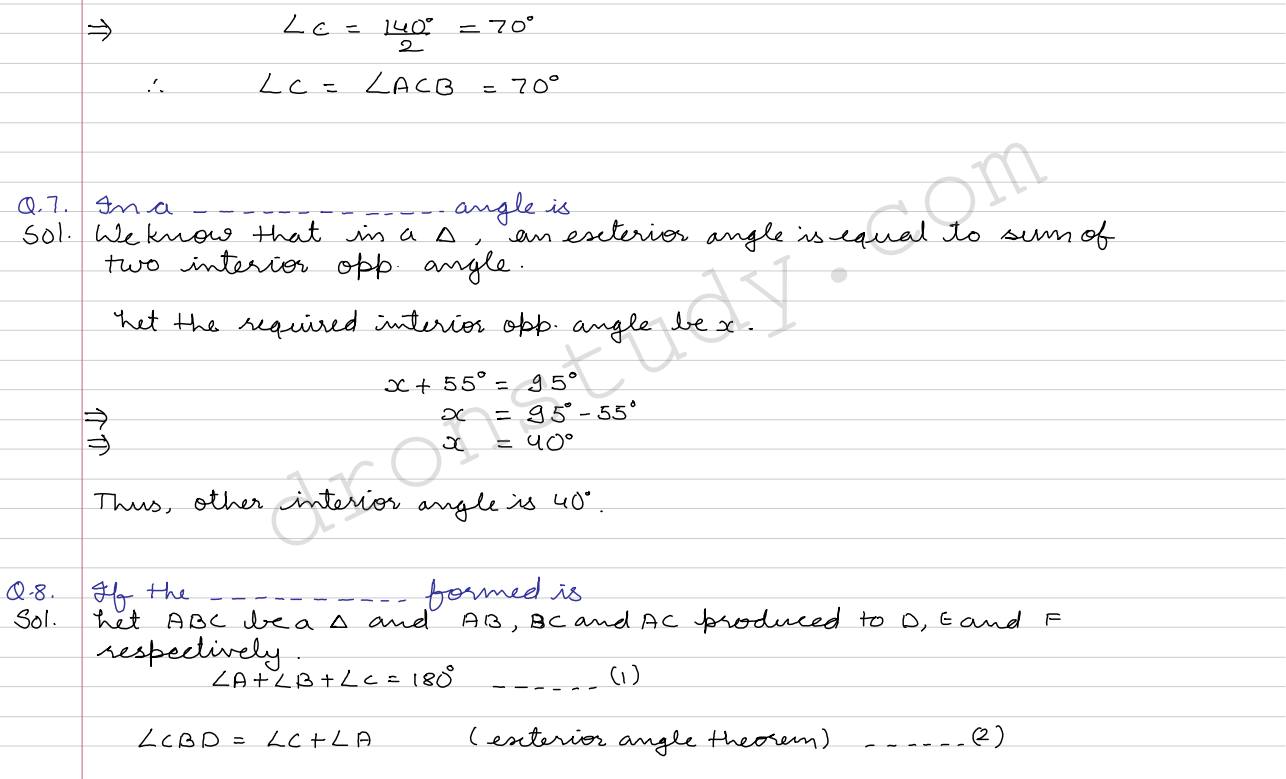 ⇒ ∠C = 140°/2 = 70°
∴ ∠C = ∠ACB = 70°
Q.7. In a _ _ _ _ _ _ _ _ _ _ _ _ _ angle is
Sol. We know that in a △, an exterior angle is equal to sum of
two interior opp. angle.
Let the required interior opp. angle be x.
x + 55° = 95°
⇒ x = 95° - 55°
⇒ x = 40°
Thus, other interior angle is 40°.
Q.8. If the _ _ _ _ _ _ _ _ _ _ _ formed is
Sol. Let ABC be a △ and AB, BC and AC produced to D, E and F
respectively.
∠A + ∠B + ∠C = 180° _ _ _ _ _ _ (1)
∠CBD = ∠C + ∠A (exterior angle theorem) _ _ _ _ _ _ (2)
dronstudy.com